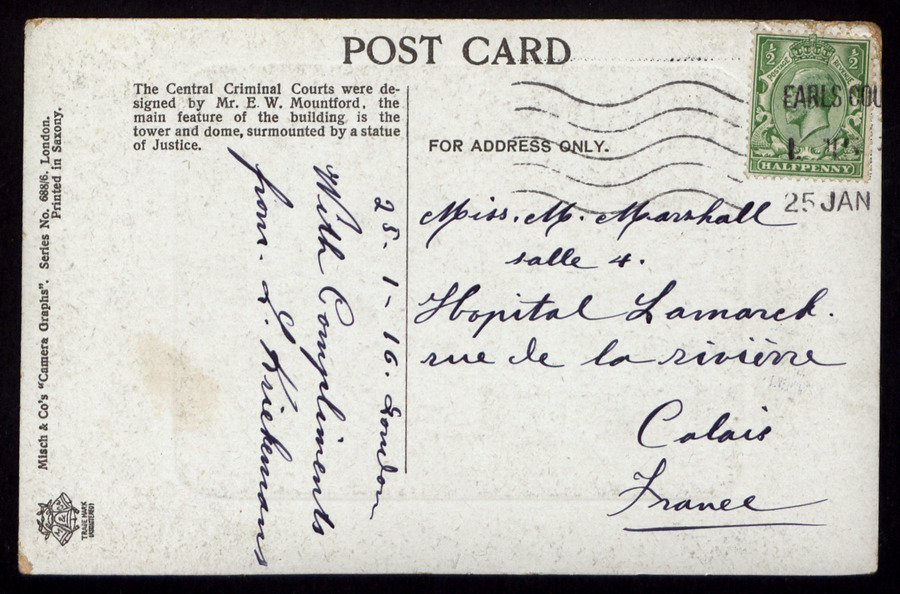 POST CARD
The Central Criminal Courts were de-
signed by Mr. E. W. Mountford, the
main feature of the building is the
tower and dome, surmounted by a statue
of Justice.
FOR ADDRESS ONLY.
½ ½
POSTAGE REVENUE
HALFPENNY
EARLS COU
25 JAN
Miss. M. Marshall
salle 4.
Hopital Lamarck.
rue de la rivièrre
Calais
France
25-1-16. London
With Compliments
from. L. Kiekemans
Misch & Co's "Camera Graphs". Series No. 688/6. London.
Printed in Saxony.
TRADE MARK